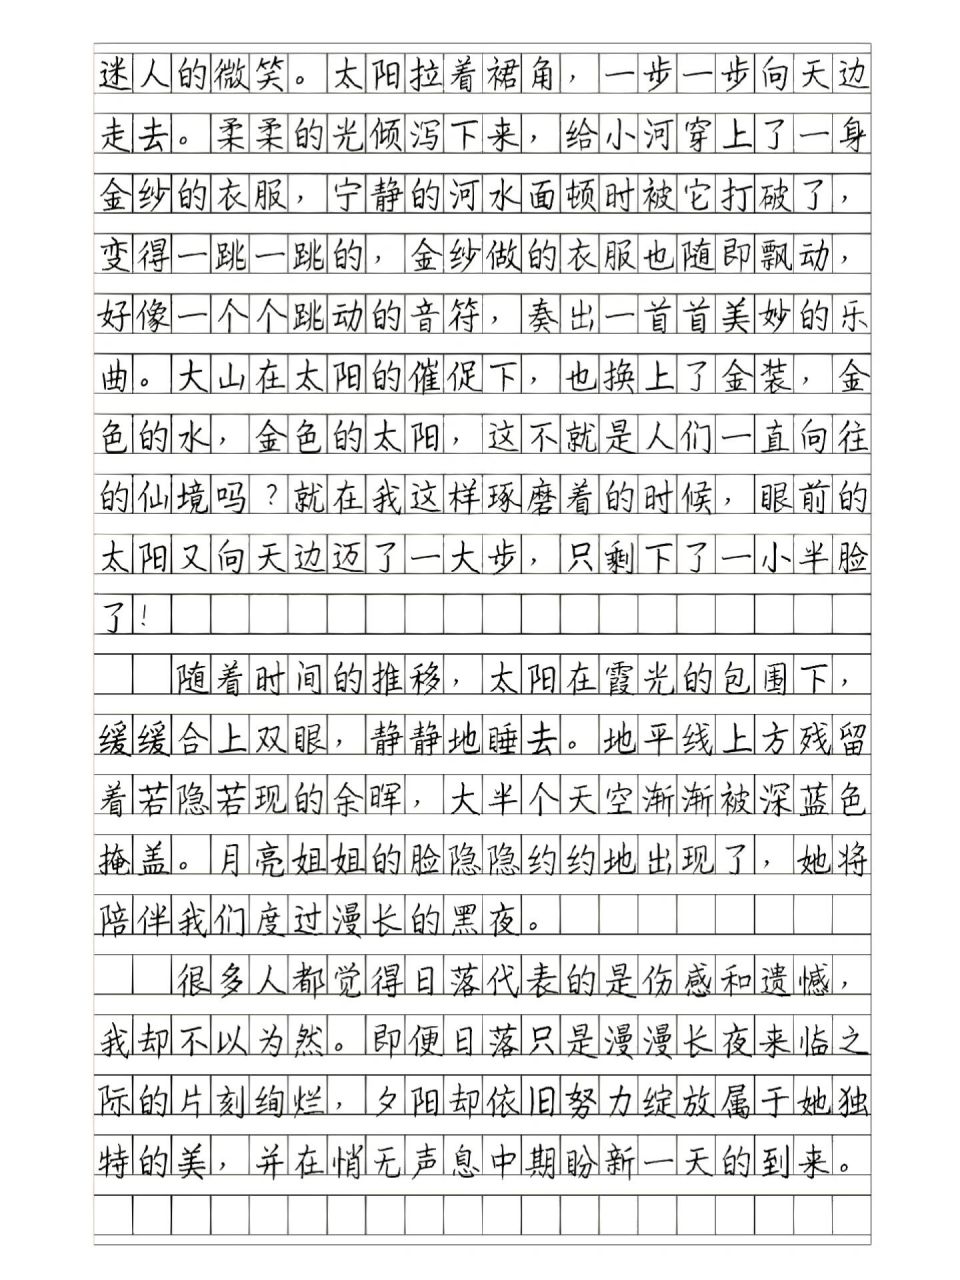 迷人的微笑。太阳拉着裙角，一步一步向天边
走去。柔柔的光倾泻下来，给小河穿上了一身
金纱的衣服，宁静的河水面顿时被它打破了，
变得一跳一跳的，金纱做的衣服也随即飘动，
好像一个个跳动的音符，奏出一首首美妙的乐
曲。大山在太阳的催促下，也换上了金装，金
色的水，金色的太阳，这不就是人们一直向往
的仙境吗？就在我这样琢磨着的时候，眼前的
太阳又向天边迈了一大步，只剩下了一小半脸
了！
随着时间的推移，太阳在霞光的包围下，
缓缓合上双眼，静静地睡去。地平线上方残留
着若隐若现的余晖，大半个天空渐渐被深蓝色
掩盖。月亮姐姐的脸隐隐约约地出现了，她将
陪伴我们度过漫长的黑夜。
很多人都觉得日落代表的是伤感和遗憾，
我却不以为然。即便日落只是漫漫长夜来临之
际的片刻绚烂，夕阳却依旧努力绽放属于她独
特的美，并在悄无声息中期盼新一天的到来。